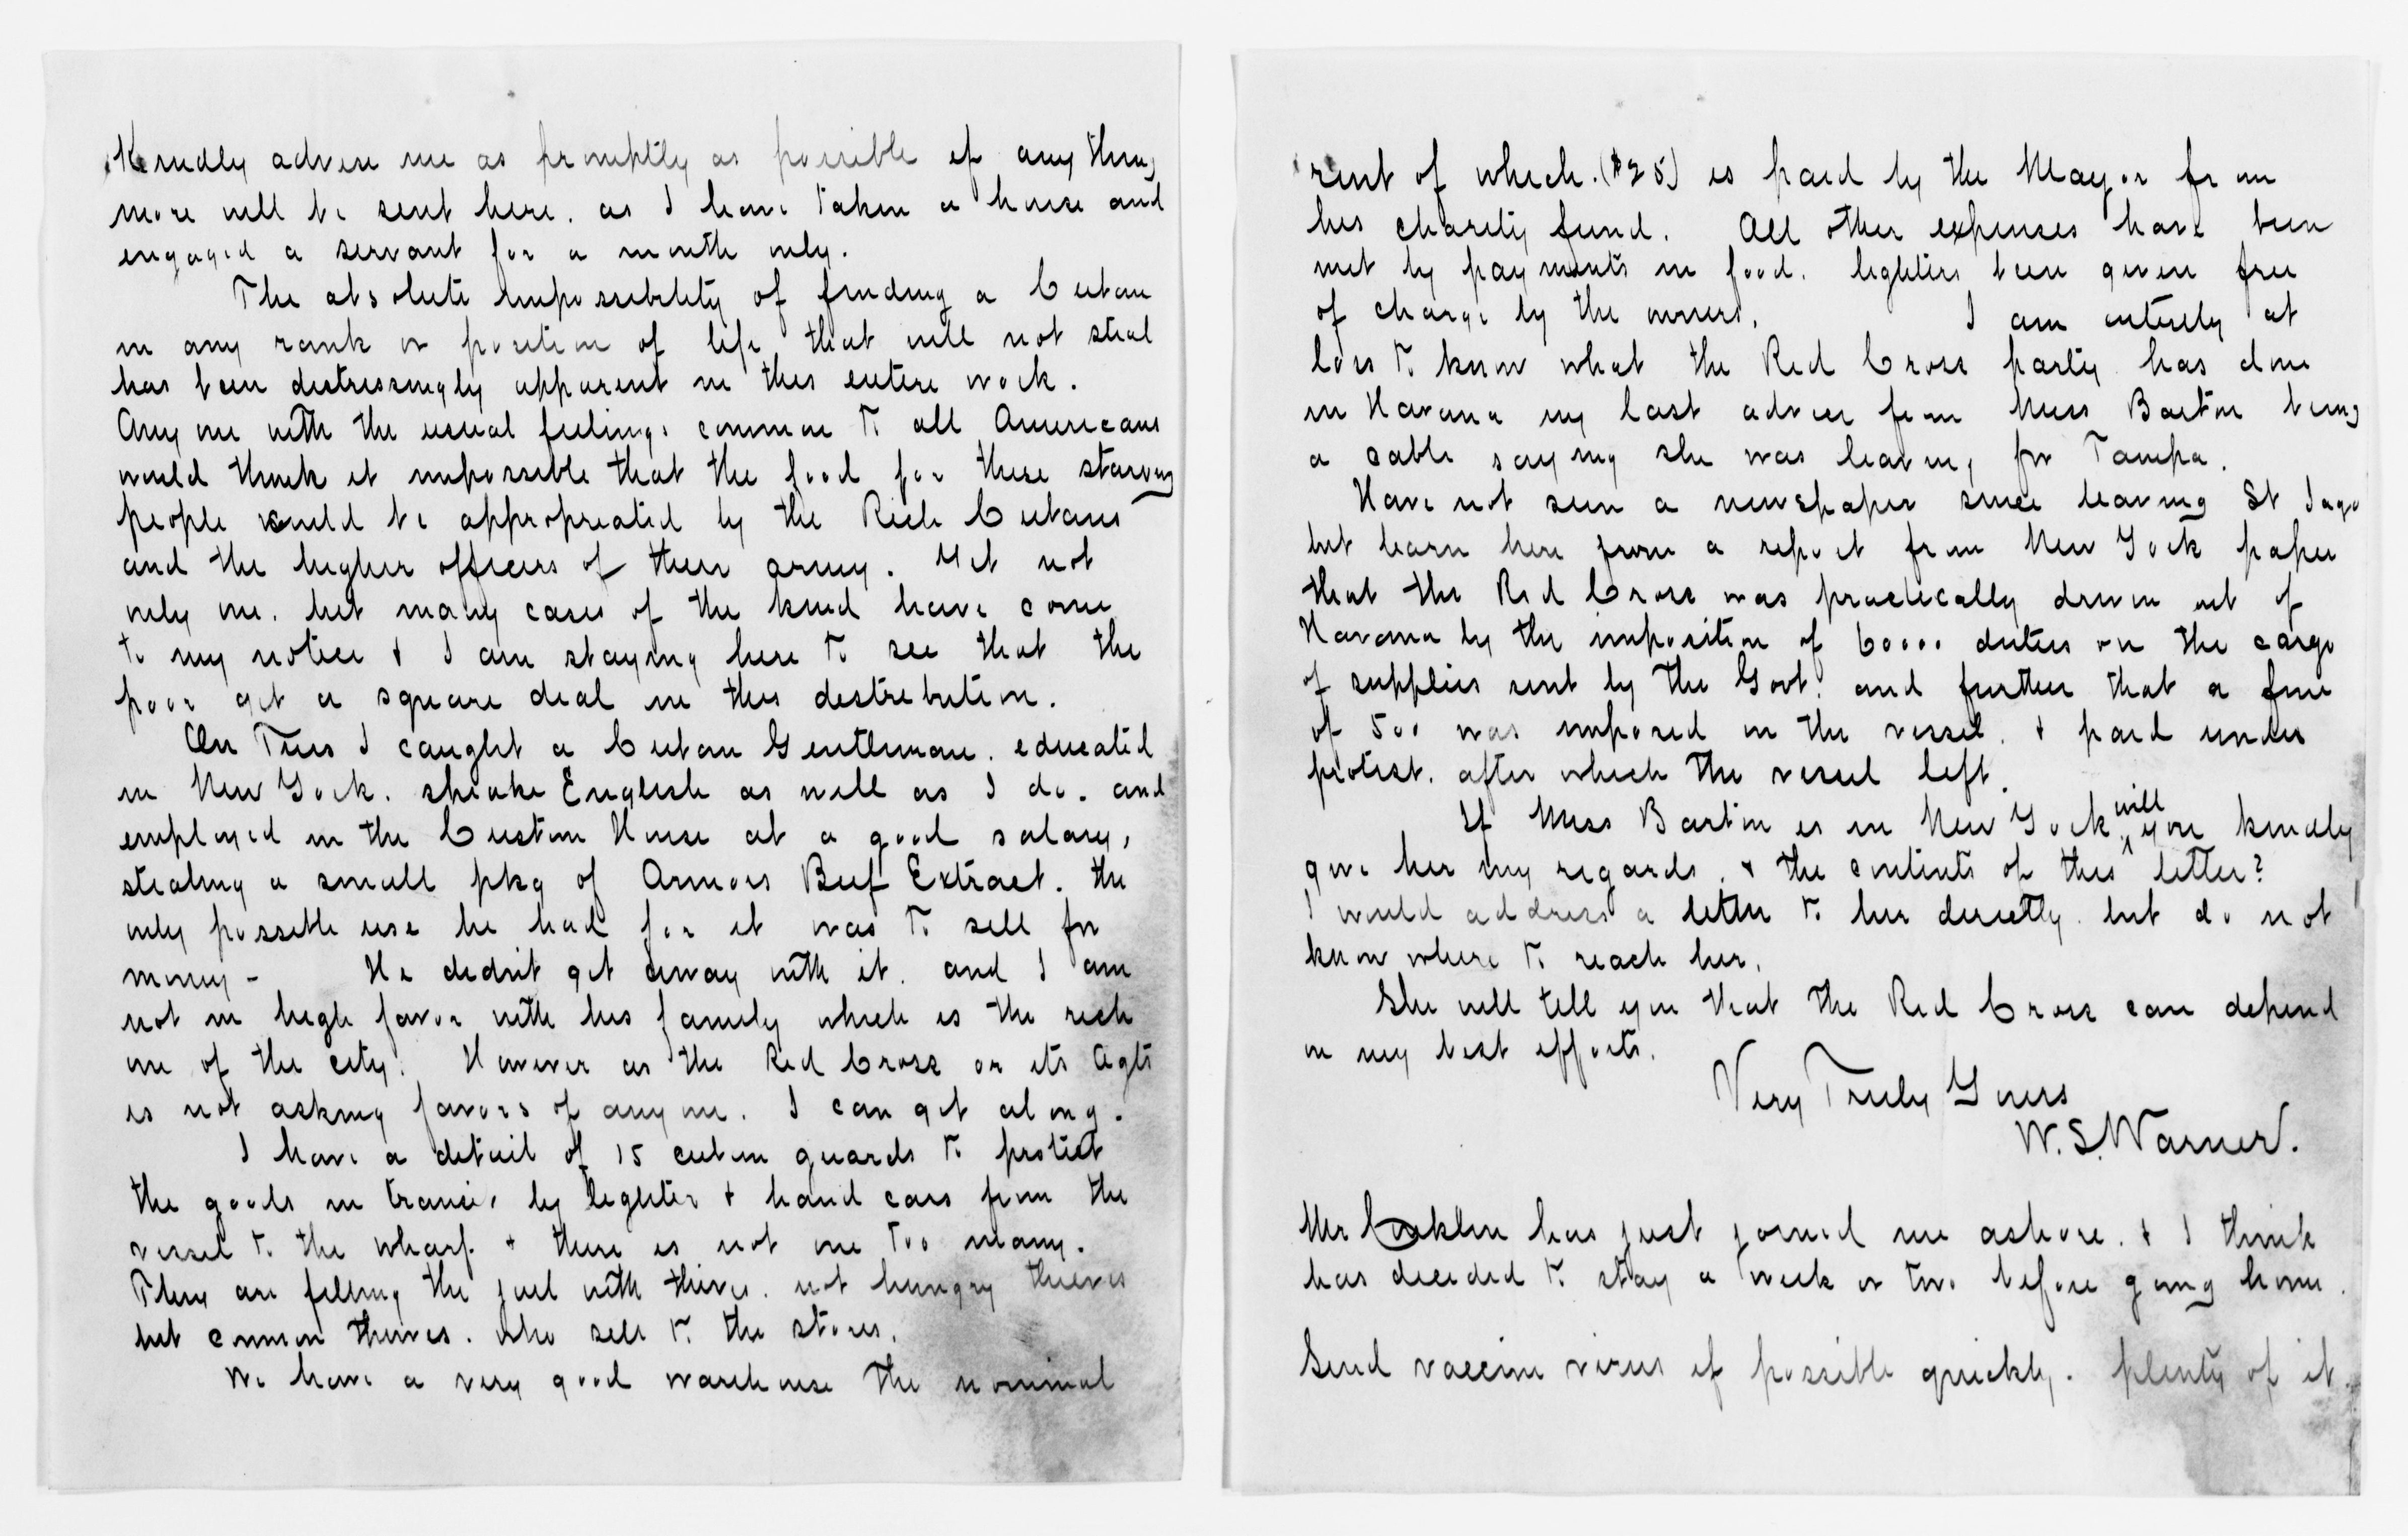 Kindly advise me as promptly as possible if any thing
more will be sent here. as I have taken a house and
engaged a servant for a month only.
The absolute impossibility of finding a Cuban
in any rank or position of life that will not steal
has been distressingly apparent in this entire work.
Any one with the usual feelings common to all Americans
would think it impossible that the food for these starving
people would be appropriated by the Rich Cubans
and the higher officers of their army. Yet not
only one. but many cases of the kind have come
to my notice & I am staying here to see that the
poor get a square deal in this distribution.
On Tues I caught a Cuban Gentleman. educated
in New York. speaks English as well as I do. and
employed in the Custom House at a good salary,
stealing a small pkg of Armors Beef Extract. the
only possible use he had for it was to sell for
money - He didn't get away with it. and I am
not in high favor with his family which is the rich
one of the city. However as the Red Cross or its Agts
is not asking favors of anyone. I can get along.
I have a detail of 15 cuban guards to protect
the goods in transit by lighter & hand cars from the
vessel to the wharf. & there is not one too many.
They are filling the jail with thieves. not hungry thieves
but common thieves. who sell to the stores.
We have a very good warehouse the nominal
rent of which. ($25) is paid by the Mayor from
his charity fund. All other expenses have been
met by payments in food. lighters been given free
of charge by the owners. I am entirely at
loss to know what the Red Cross party has done
in Havana my last advices from Miss Barton being
a cable saying she was leaving for Tampa.
Have not seen a newspaper since leaving St Jago
but learn here from a report from New York paper
that the Red Cross was practically driven out of
Havana by the imposition of 60000 duties on the cargo
of supplies sent by the Govt. and further that a fine
of 500 was imposed on the vessel. & paid under
protest. after which the vessel left.
If Miss Barton is in New York will you kindly
give her my regards. & the contents of this letter?
I would address a letter to her directly. but do not
know where to reach her.
She will tell you that the Red Cross can depend
on my best efforts.
Very Truly Yours
W. S. Warner.
Mr has just joined me ashore. & I think
has decided to stay a week or two before going home.
Send vaccine virus if possible quickly. plenty of it.